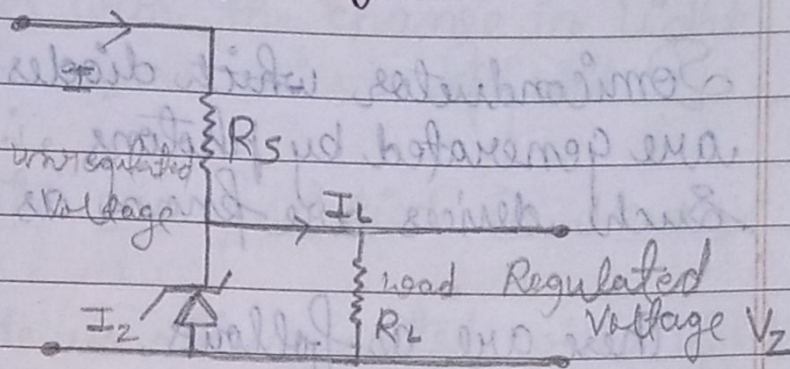 I
Rs
unregulated
voltage
IL
Load
RL
Regulated
Voltage Vz
Iz